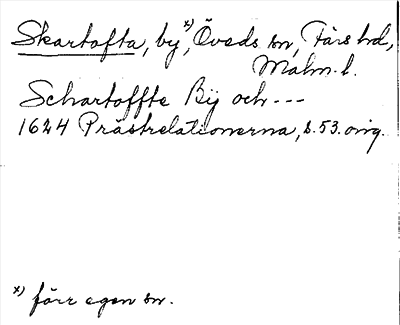 Skartofta, by x), Öveds sn, Färs hd,
Malm. l.
Schartoffte Bÿ och ---
1624 Prästrelationerna, s. 53. orig.
x) förr egen sn.